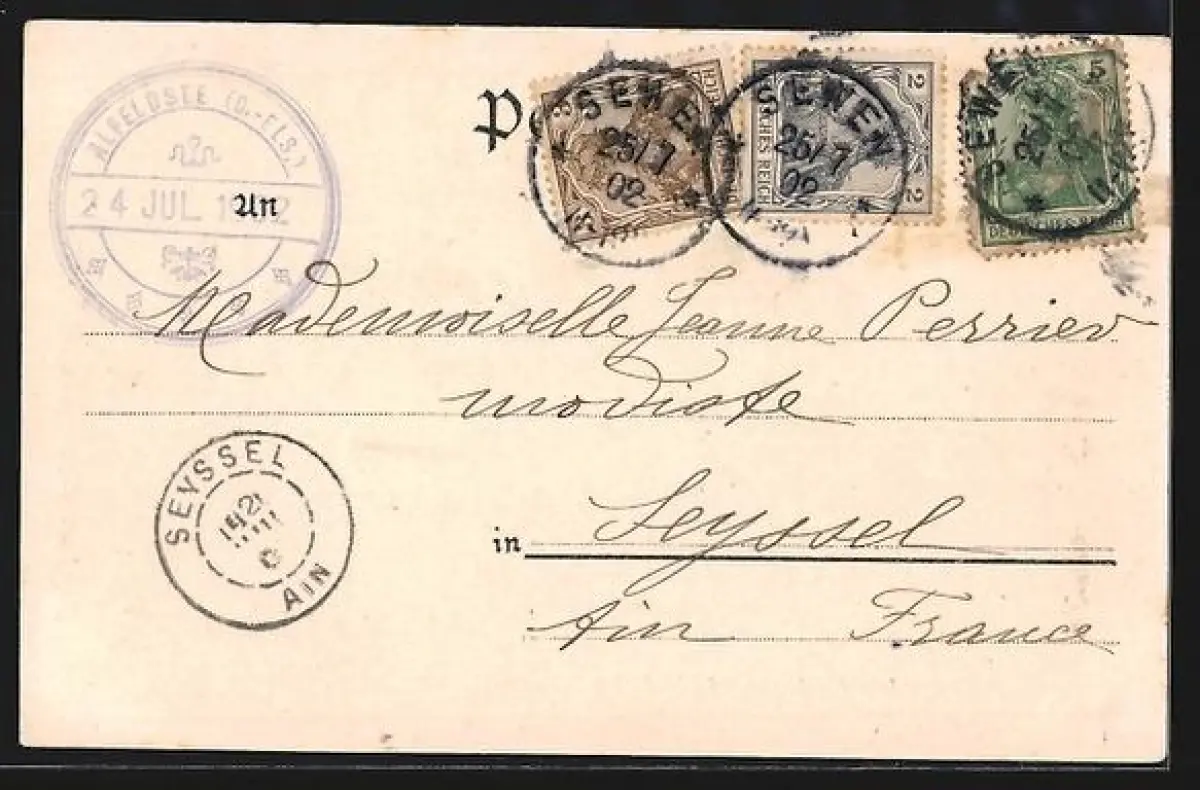 ALFELDSEE (O.-ELS.)
24 JUL 1902
SEWEN
25/7
02
3
SEWEN
25/7
02
DEUTSCHES REICH
2
2
SEWEN
25
5
DEUTSCHES REICH
An
Mademoiselle Jeanne Perrier
modiste
in Seyssel
Ain France
SEYSSEL
AIN